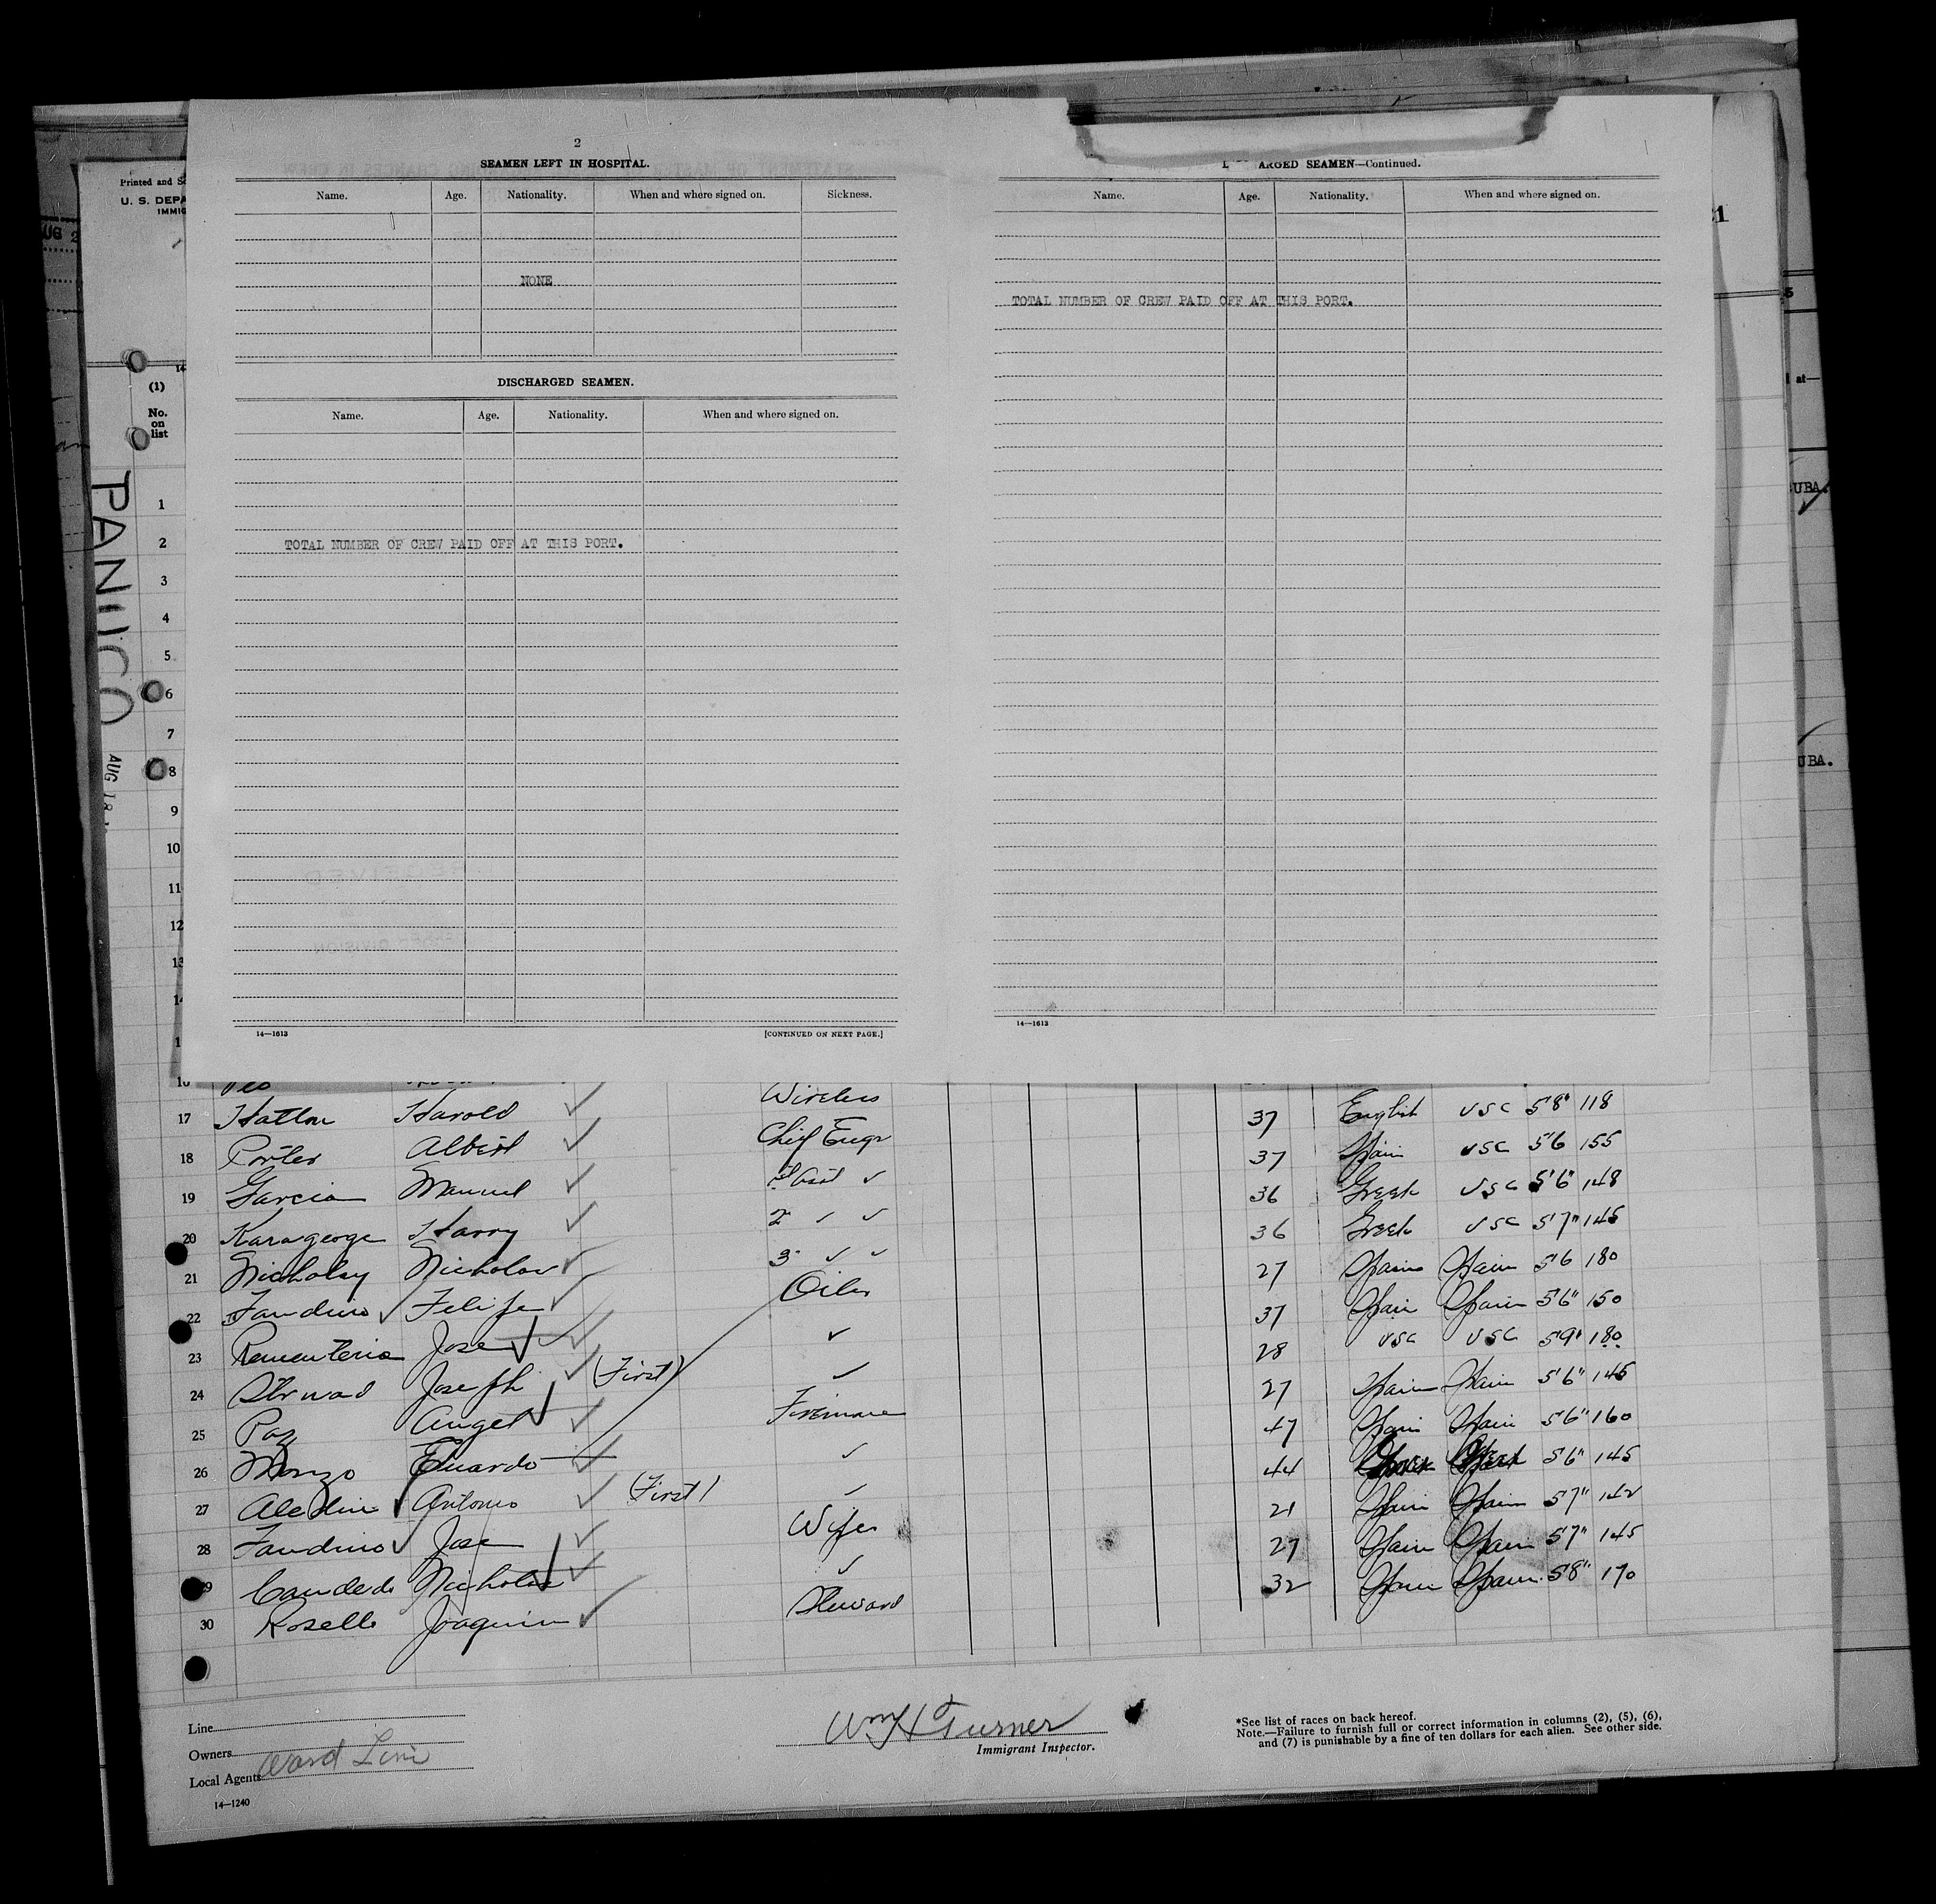 2
SEAMEN LEFT IN HOSPITAL.
Name. Age. Nationality. When and where signed on. Sickness.
NONE
DISCHARGED SEAMEN.
Name. Age. Nationality. When and where signed on.
TOTAL NUMBER OF CREW PAID OFF AT THIS PORT.
14—1613
[CONTINUED ON NEXT PAGE.]
ARGED SEAMEN—Continued.
Name. Age. Nationality. When and where signed on.
TOTAL NUMBER OF CREW PAID OFF AT THIS PORT.
14—1613
Printed and S
U. S. DEPA
IMMIG
AUG 2
14
(1)
No.
on
list
PANUCO
AUG 18
1
2
3
4
5
6
7
8
9
10
11
12
13
at—
UBA.
UBA.
16 Wireless
17 Hatton Harold ✓ Chief Engr 37 English USC 5'8" 118
18 Porter Albert ✓ 37 Spain USC 5'6 155
19 Garcia Manuel ✓ 36 Greek USC 5'6" 148
20 Karageorge Harry ✓ 2 ✓ ✓ 36 Greek USC 5'7" 145
21 Nicholas ✓ 3 ✓ ✓ 27 Spain Spain 5'6 180
22 Fandino ✓ Felipe ✓ Oiler 37 Spain Spain 5'6" 150
23 Rementeria Jose ✓ ✓ 28 USC USC 5'9" 180
24 Joseph ✓ (First) ✓ 27 Spain Spain 5'6" 145
25 Paz Angel ✓ Fireman 47 Spain Spain 5'6" 160
26 Eduardo ✓ ✓ 44 5'6" 145
27 Antonio ✓ (First) ✓ 21 Spain Spain 5'7" 142
28 Fandino ✓ Jose ✓ Wiper 27 Spain Spain 5'7" 145
29 Nicholas ✓ ✓ 32 Spain Spain 5'8" 170
30 Roselle Joaquin ✓ Steward
Line
Owners
Local Agents Ward Line
14—1240
Wm H Turner
Immigrant Inspector.
*See list of races on back hereof.
Note.—Failure to furnish full or correct information in columns (2), (5), (6),
and (7) is punishable by a fine of ten dollars for each alien. See other side.